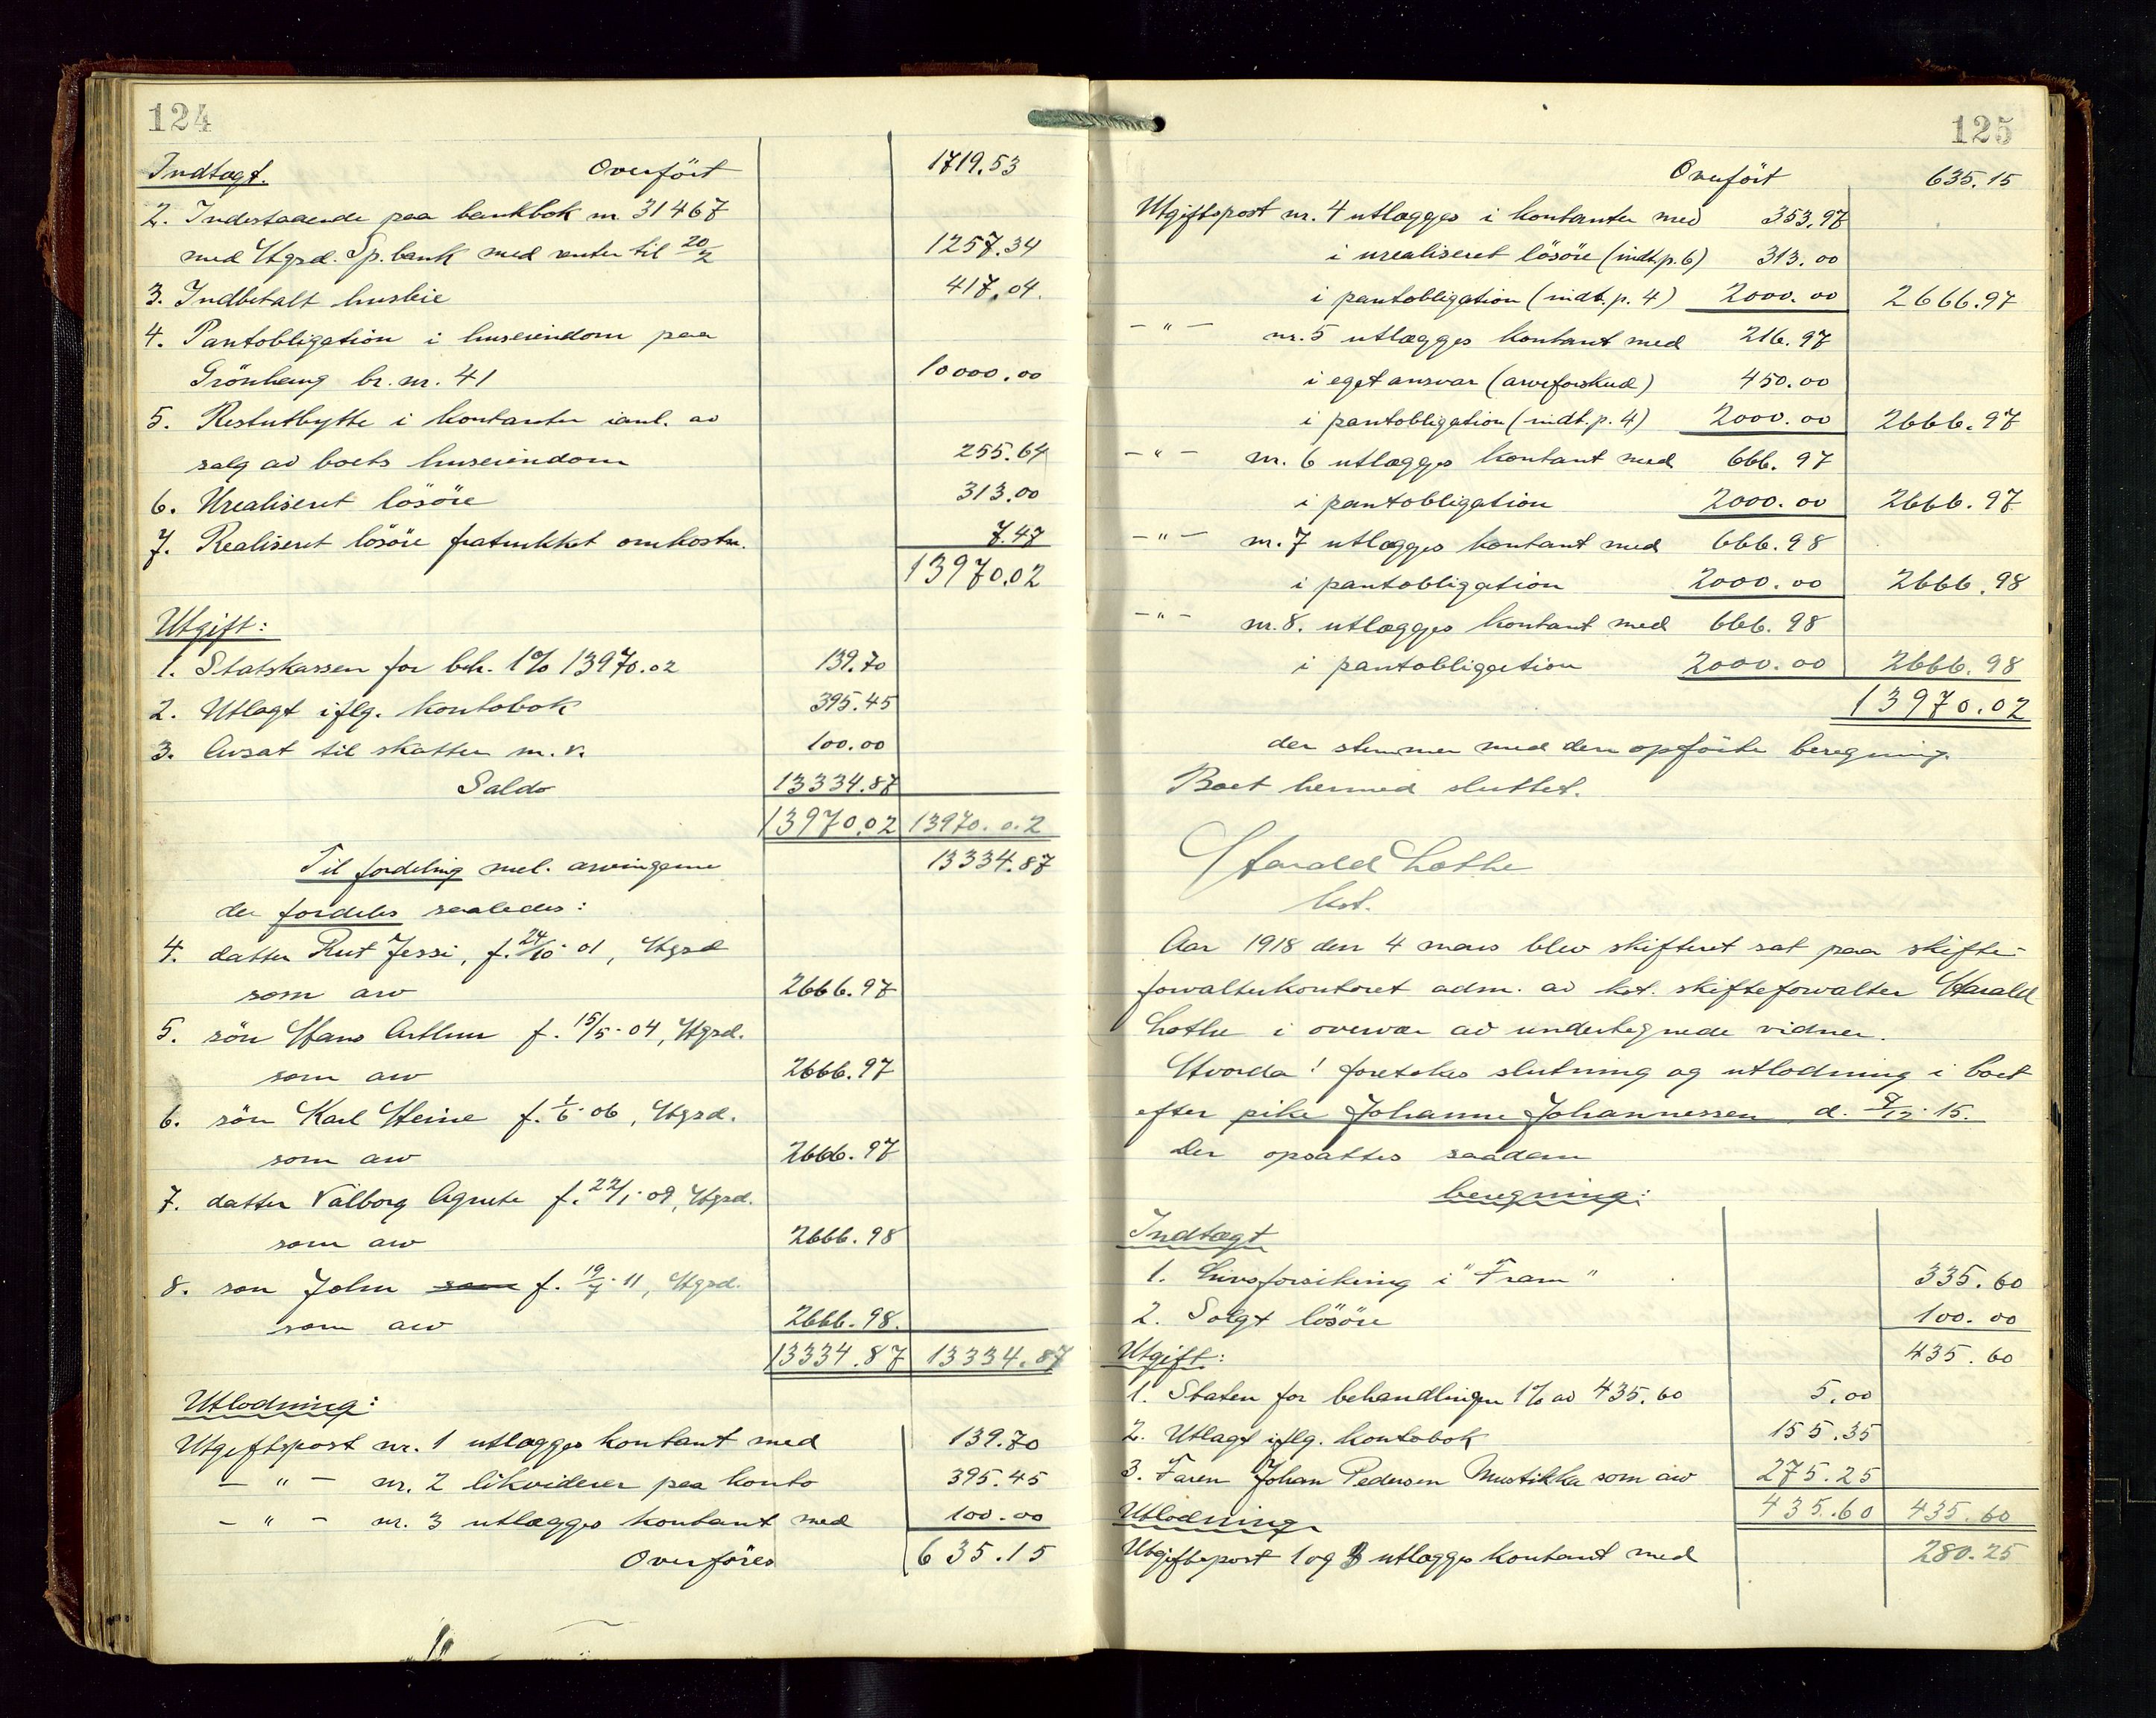 124
Indtægt. Overfört 1719.53
2. Indestaaende paa bankbok nr. 31467
med Hgsd. Sp.bank med renter til 20/2 1257.34
3. Indbetalt husleie 417.04.
4. Pantobligation i huseiendom paa
Grönhaug br. nr. 41 10000.00
5. Restutbytte i kontanter ianl. av
salg av boets huseiendom 255.64
6. Urealiseret lösöre 313.00
7. Realiseret lösöre fratrukket omkostn. 7.47
13970.02
Utgift:
1. Statskassen for beh. 1% 13970.02 139.70
2. Utlagt iflg. kontobok 395.45
3. Avsat til skatter m.v. 100.00
Saldo 13334.87
13970.02 13970.02
Til fordeling mel. arvingerne 13334.87
der fordeles saaledes:
4. datter Rut Jessi, f. 24/10-01, Hgsd
som arv 2666.97
5. sön Hans Arthur f. 15/5-04, Hgsd.
som arv 2666.97
6. sön Karl Heine f. 1/6-06, Hgsd.
som arv 2666.97
7. datter Valborg Agnete f. 22/1-09, Hgsd.
som arv 2666.98
8. sön John som f. 19/7-11, Hgsd.
som arv 2666.98.
13334.87 13334.87
Utlodning:
Utgiftspost nr. 1 utlægges kontant med 139.70
– " – nr. 2 likviderer paa konto 395.45
– " – nr. 3 utlægges kontant med 100.00
Overföres 635.15
125
Overfört 635.15
Utgiftspost nr. 4 utlægges i kontanter med 353.97
i urealiseret lösöre (indt.p.6) 313.00
i pantobligation (indt. p. 4) 2000.00 2666.97
– " – nr. 5 utlægges kontant med 216.97
i eget ansvar (arveforskud) 450.00
i pantobligation (indt. p. 4) 2000.00 2666.97
– " – nr. 6 utlægges kontant med 666.97
i pantobligation 2000.00 2666.97
– " – nr. 7 utlægges kontant med 666.98
i pantobligation 2000.00 2666.98
– " – nr. 8. utlægges kontant med 666.98
i pantobligation 2000.00 2666.98
13970.02
der stemmer med den opförte beregning.
Boet hermed sluttet.
Harald Lothe
kst.
Aar 1918 den 4 mars blev skifteret sat paa skifte-
forvalterkontoret adm. av kst. skifteforvalter Harald
Lothe i overvær av undertegnede vidner.
Hvorda! foretokes slutning og utlodning i boet
efter pike Johanne Johannessen d. 9/12-15.
Der opsattes saadan
beregning:
Indtægt
1. Livsforsikring i "Fram" 335.60
2. Solgt lösöre 100.00
Utgift: 435.60
1. Staten for behandlingen 1% av 435.60 5.00
2. Utlagt iflg. kontobok 155.35
3. Faren Johan Pedersen Mustikka som arv 275.25
435.60 435.60
Utlodning
Utgiftspost 1 og 3 utlægges kontant med 280.25